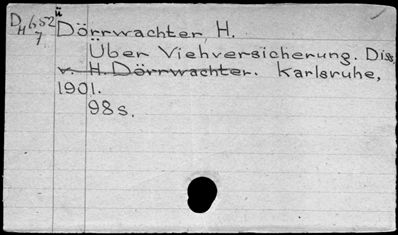 DH652ü
7
Dörrwachter, H.
Über Viehversicherung. Diss.
v. H. Dörrwachter. Karlsruhe,
1901.
98 s.